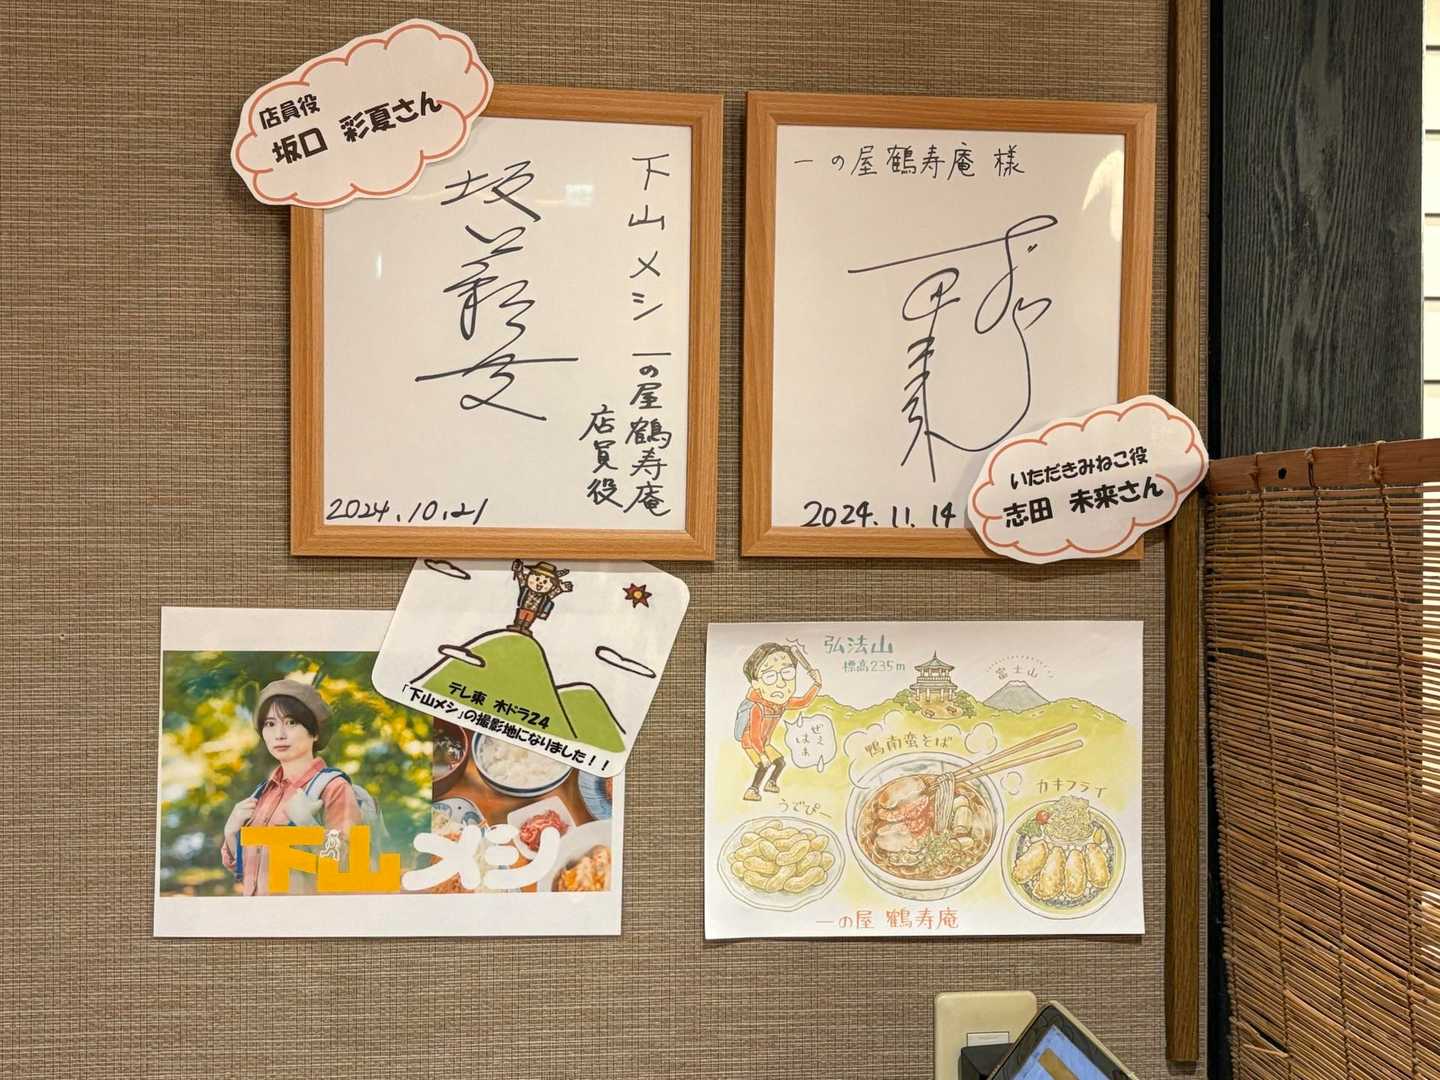 店員役
坂口 彩夏さん
坂口彩夏
下山メシ 一の屋鶴寿庵
店員役
2024.10.21
一の屋鶴寿庵 様
2024.11.14
いただきみねこ役
志田 未来さん
テレ東 木ドラ24
「下山メシ」の撮影地になりました！！
下山メシ
弘法山
標高235m
富士山
ぜぇ
はぁ
鴨南蛮そば
カキフライ
うでぴー
一の屋 鶴寿庵